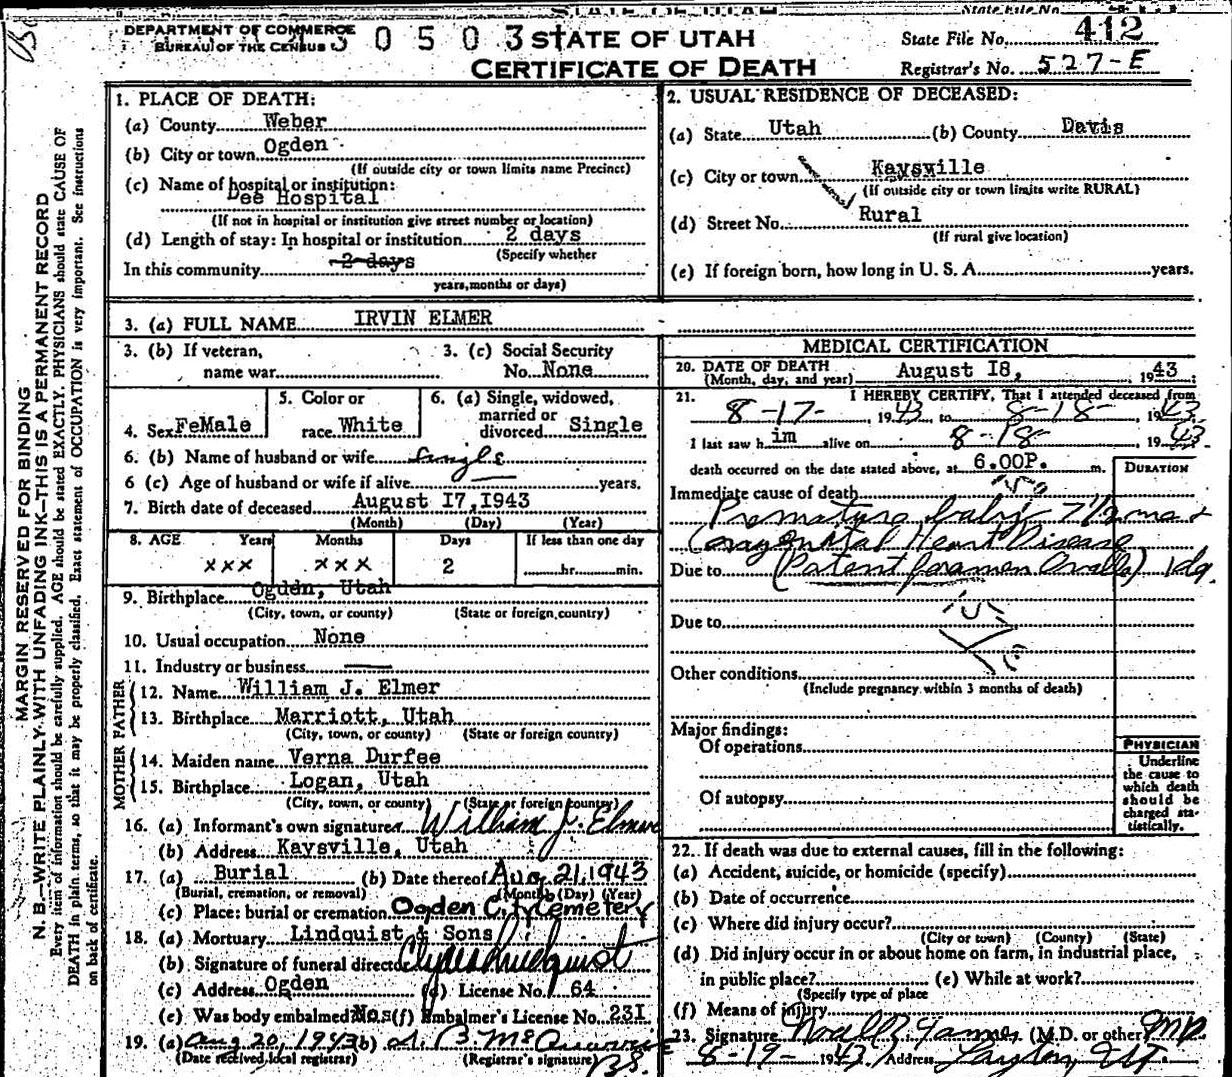 STATE OF UTAH
State File No.
DEPARTMENT OF COMMERCE
BUREAU OF THE CENSUS
30503
STATE OF UTAH
CERTIFICATE OF DEATH
State File No. 412
Registrar's No. 527-E
MARGIN RESERVED FOR BINDING
N. B.—WRITE PLAINLY WITH UNFADING INK—THIS IS A PERMANENT RECORD
Every item of information should be carefully supplied. AGE should be stated EXACTLY. PHYSICIANS should state CAUSE OF
DEATH in plain terms, so that it may be properly classified. Exact statement of OCCUPATION is very important. See instructions
on back of certificate.
1. PLACE OF DEATH:
(a) County Weber
(b) City or town Ogden
(If outside city or town limits name Precinct)
(c) Name of hospital or institution:
Dee Hospital
(If not in hospital or institution give street number or location)
(d) Length of stay: In hospital or institution 2 days
(Specify whether
In this community 2 days
years, months or days)
2. USUAL RESIDENCE OF DECEASED:
(a) State Utah (b) County Davis
(c) City or town Kaysville
(If outside city or town limits write RURAL)
(d) Street No. Rural
(If rural give location)
(e) If foreign born, how long in U. S. A. years.
3. (a) FULL NAME IRVIN ELMER
3. (b) If veteran,
name war
3. (c) Social Security
No. None
4. Sex FeMale
5. Color or
race White
6. (a) Single, widowed,
married or
divorced Single
6. (b) Name of husband or wife Single
6 (c) Age of husband or wife if alive years.
7. Birth date of deceased August 17, 1943
(Month) (Day) (Year)
8. AGE Years Months Days If less than one day
xxx xxx 2 hr. min.
9. Birthplace Ogden, Utah
(City, town, or county) (State or foreign country)
10. Usual occupation None
11. Industry or business
FATHER
12. Name William J. Elmer
13. Birthplace Marriott, Utah
(City, town, or county) (State or foreign country)
MOTHER
14. Maiden name Verna Durfee
15. Birthplace Logan, Utah
(City, town, or county) (State or foreign country)
16. (a) Informant's own signature William J. Elmer
(b) Address Kaysville, Utah
17. (a) Burial (b) Date thereof Aug 21, 1943
(Burial, cremation, or removal) (Month) (Day) (Year)
(c) Place: burial or cremation Ogden City Cemetery
18. (a) Mortuary Lindquist & Sons
(b) Signature of funeral director Clyde Lindquist
(c) Address Ogden (d) License No. 64
(e) Was body embalmed (f) Embalmer's License No. 231
19. (a) Aug 20, 1943 (b)
(Date received local registrar) (Registrar's signature)
MEDICAL CERTIFICATION
20. DATE OF DEATH
(Month, day, and year) August 18, 1943
21. I HEREBY CERTIFY, That I attended deceased from
8-17- 1943 to 8-18- 1943
I last saw him alive on 8-18 1943
death occurred on the date stated above, at 6.00P. m.
DURATION
Immediate cause of death
Premature baby 7 1/2 mo &
Congenital Heart Disease
Due to (Patent foramen Ovalle) 1da.
Due to
Other conditions
(Include pregnancy within 3 months of death)
Major findings:
Of operations
Of autopsy
PHYSICIAN
Underline
the cause to
which death
should be
charged sta-
tistically.
22. If death was due to external causes, fill in the following:
(a) Accident, suicide, or homicide (specify)
(b) Date of occurrence
(c) Where did injury occur?
(City or town) (County) (State)
(d) Did injury occur in or about home on farm, in industrial place,
in public place? (e) While at work?
(Specify type of place
(f) Means of injury
23. Signature (M.D. or other) MD
8-19- 1943 Address Layton, Ut.